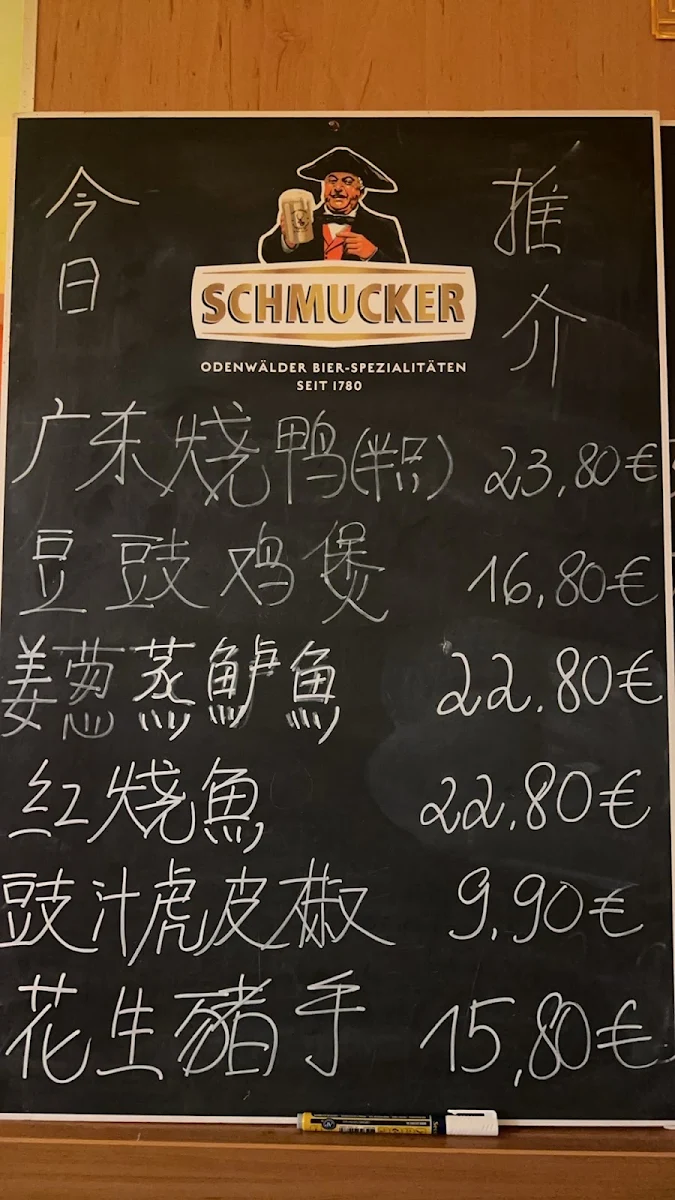 今日
推介
SCHMUCKER
ODENWÄLDER BIER-SPEZIALITÄTEN
SEIT 1780
广东烧鸭(半只) 23,80€
豆豉鸡煲 16,80€
姜葱蒸鱸魚 22.80€
红烧魚 22,80€
豉汁虎皮椒 9,90€
花生豬手 15,80€